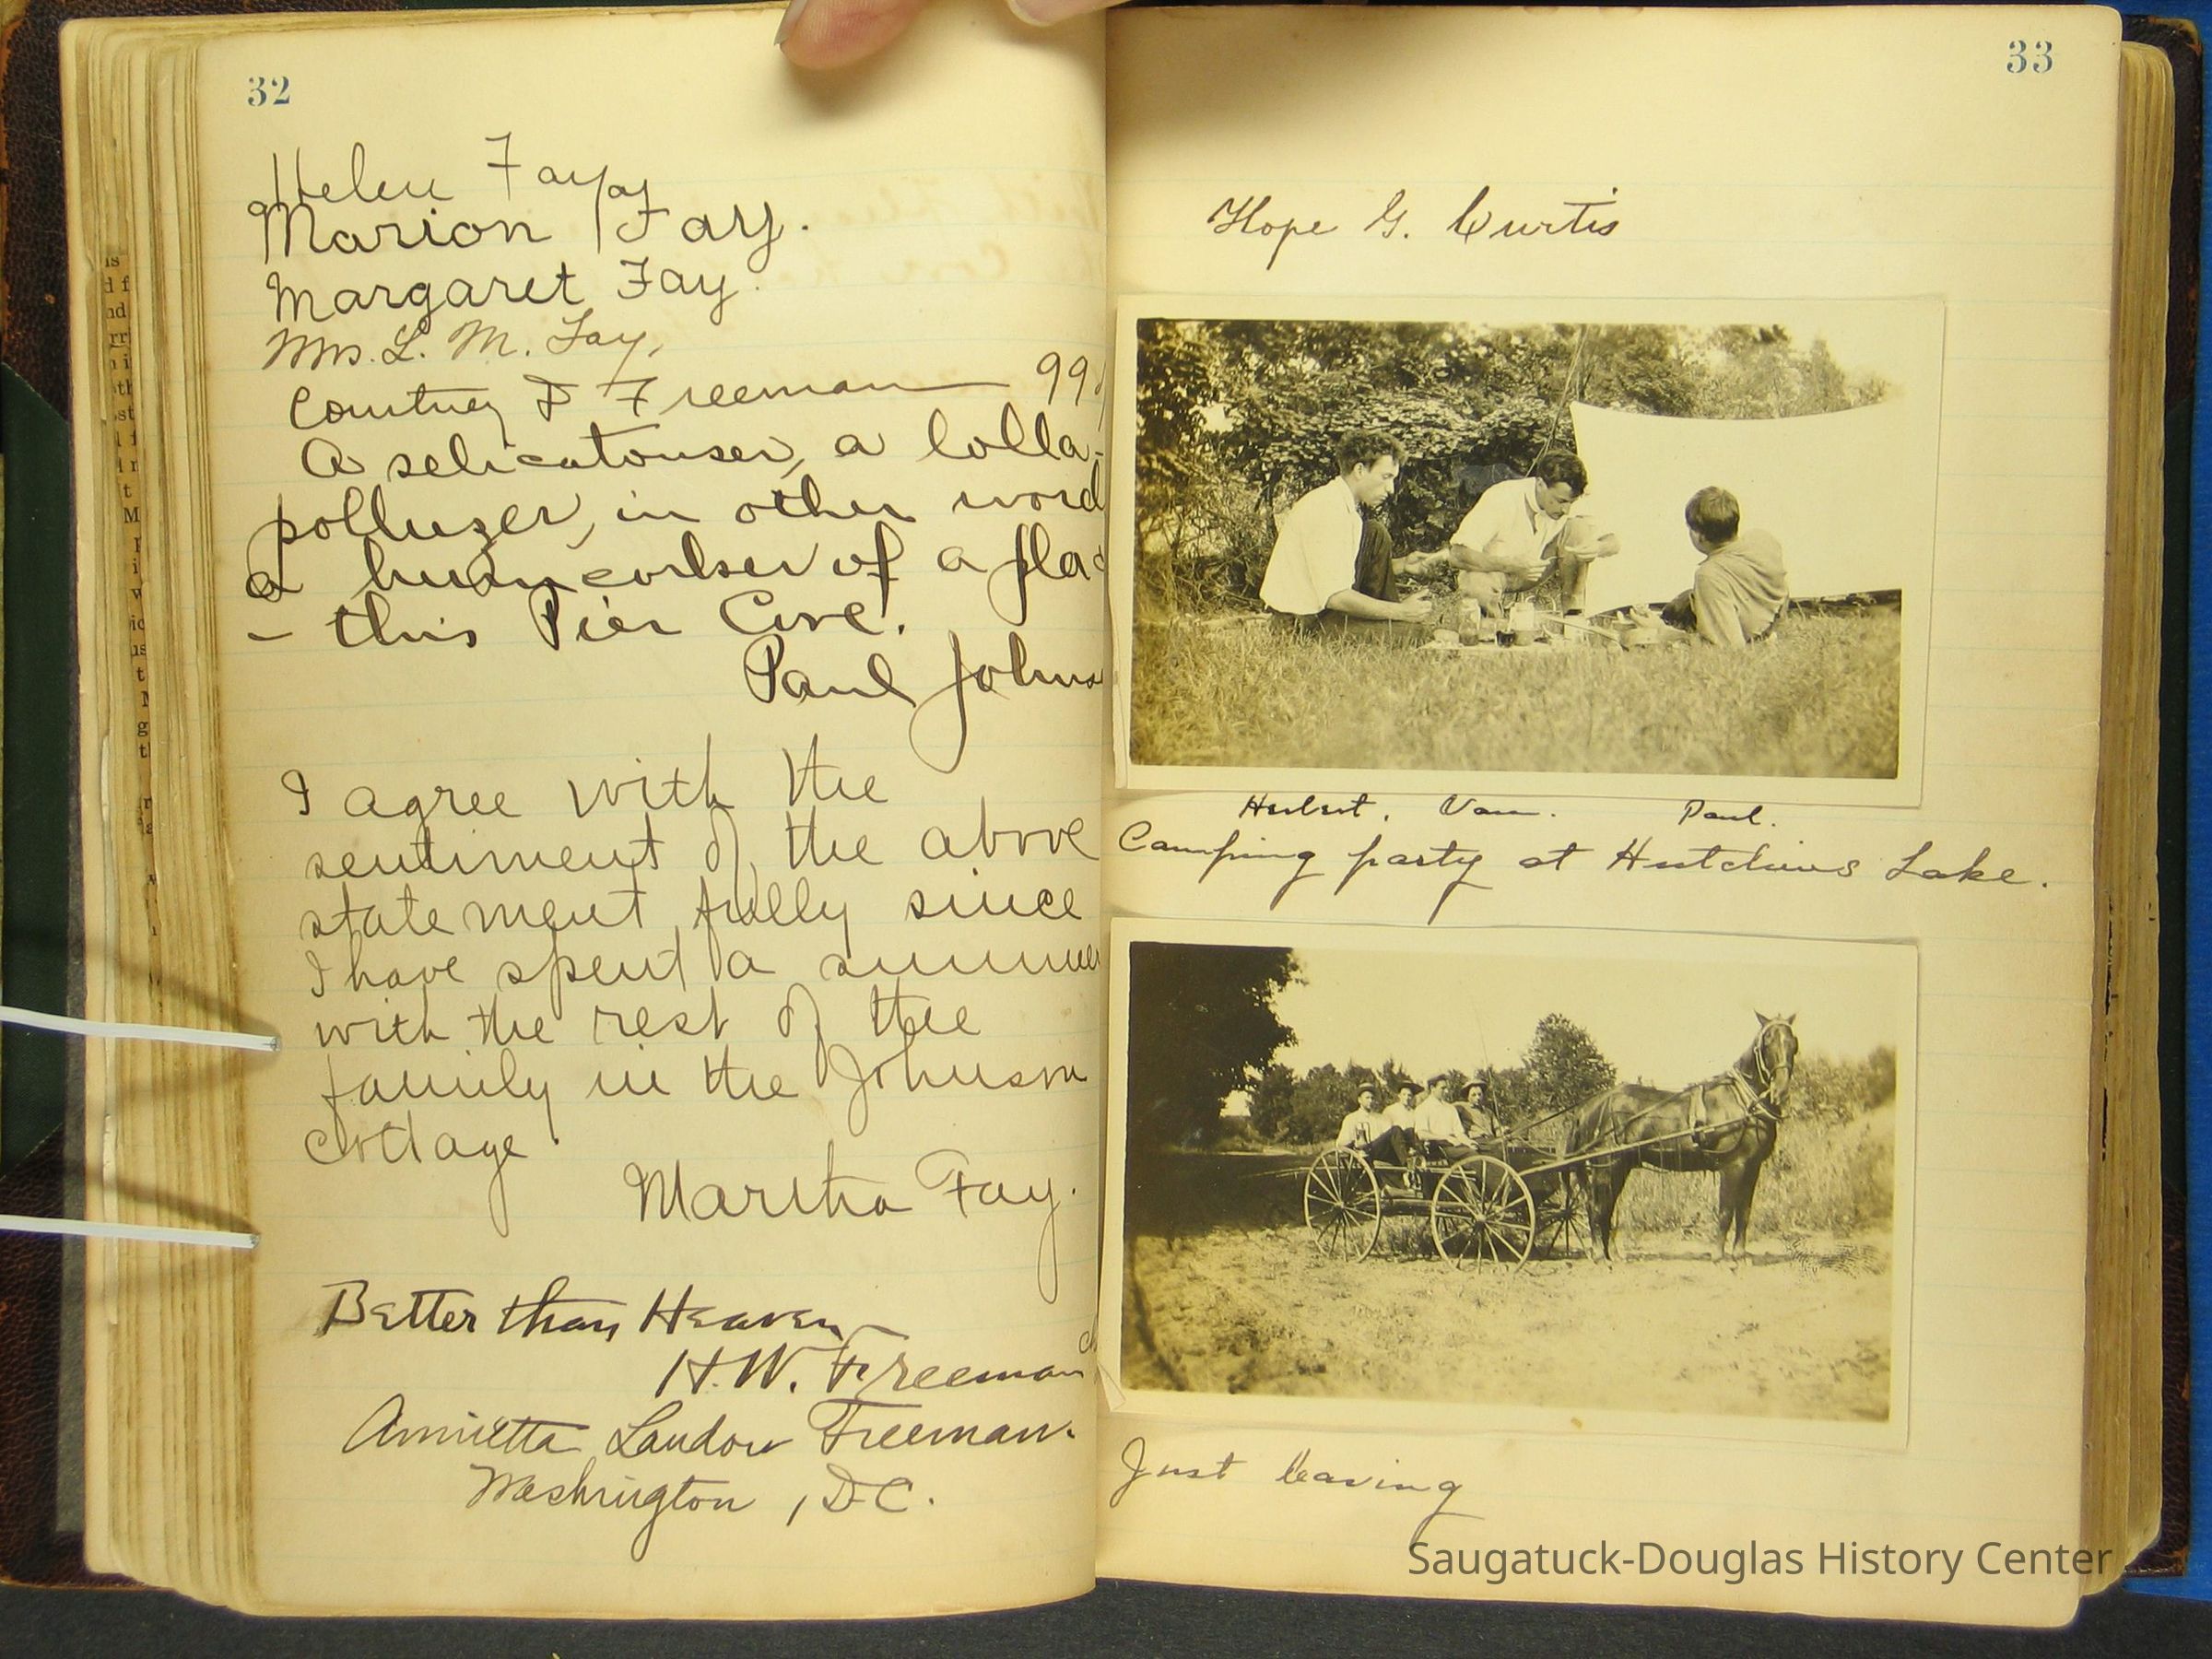 32
Helen Fay
Marion Fay.
Margaret Fay.
Mrs. L. M. Fay,
Courtney D Freeman 99
A selicatouser, a lolla-
polluzer, in other word
a of a pla
- this Pier Cove.
Paul Johns
I agree with the
sentiment of the above
statement fully since
I have spent a summer
with the rest of the
family in the Johnson
cottage
Martha Fay.
Better than Heaven
H. W. Freeman
Annietta Landon Freeman.
Washington, D.C.
33
Hope G. Curtis
Herbert. Van. Paul.
Camping party at Hutchins Lake.
Just leaving
Saugatuck-Douglas History Center